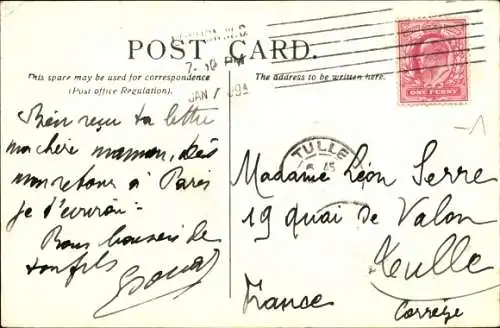 POST CARD.
This space may be used for correspondence
(Post office Regulation).
The address to be written here.
7- PM
JAN 1 09
ONE PENNY
TULLE
Bien reçu ta lettre
ma chère maman, dès
mon retour à Paris
je t'écrirai -
Bons baisers de
ton fils
Madame Léon Serre
19 quai de Valon
Tulle
Corrèze
France